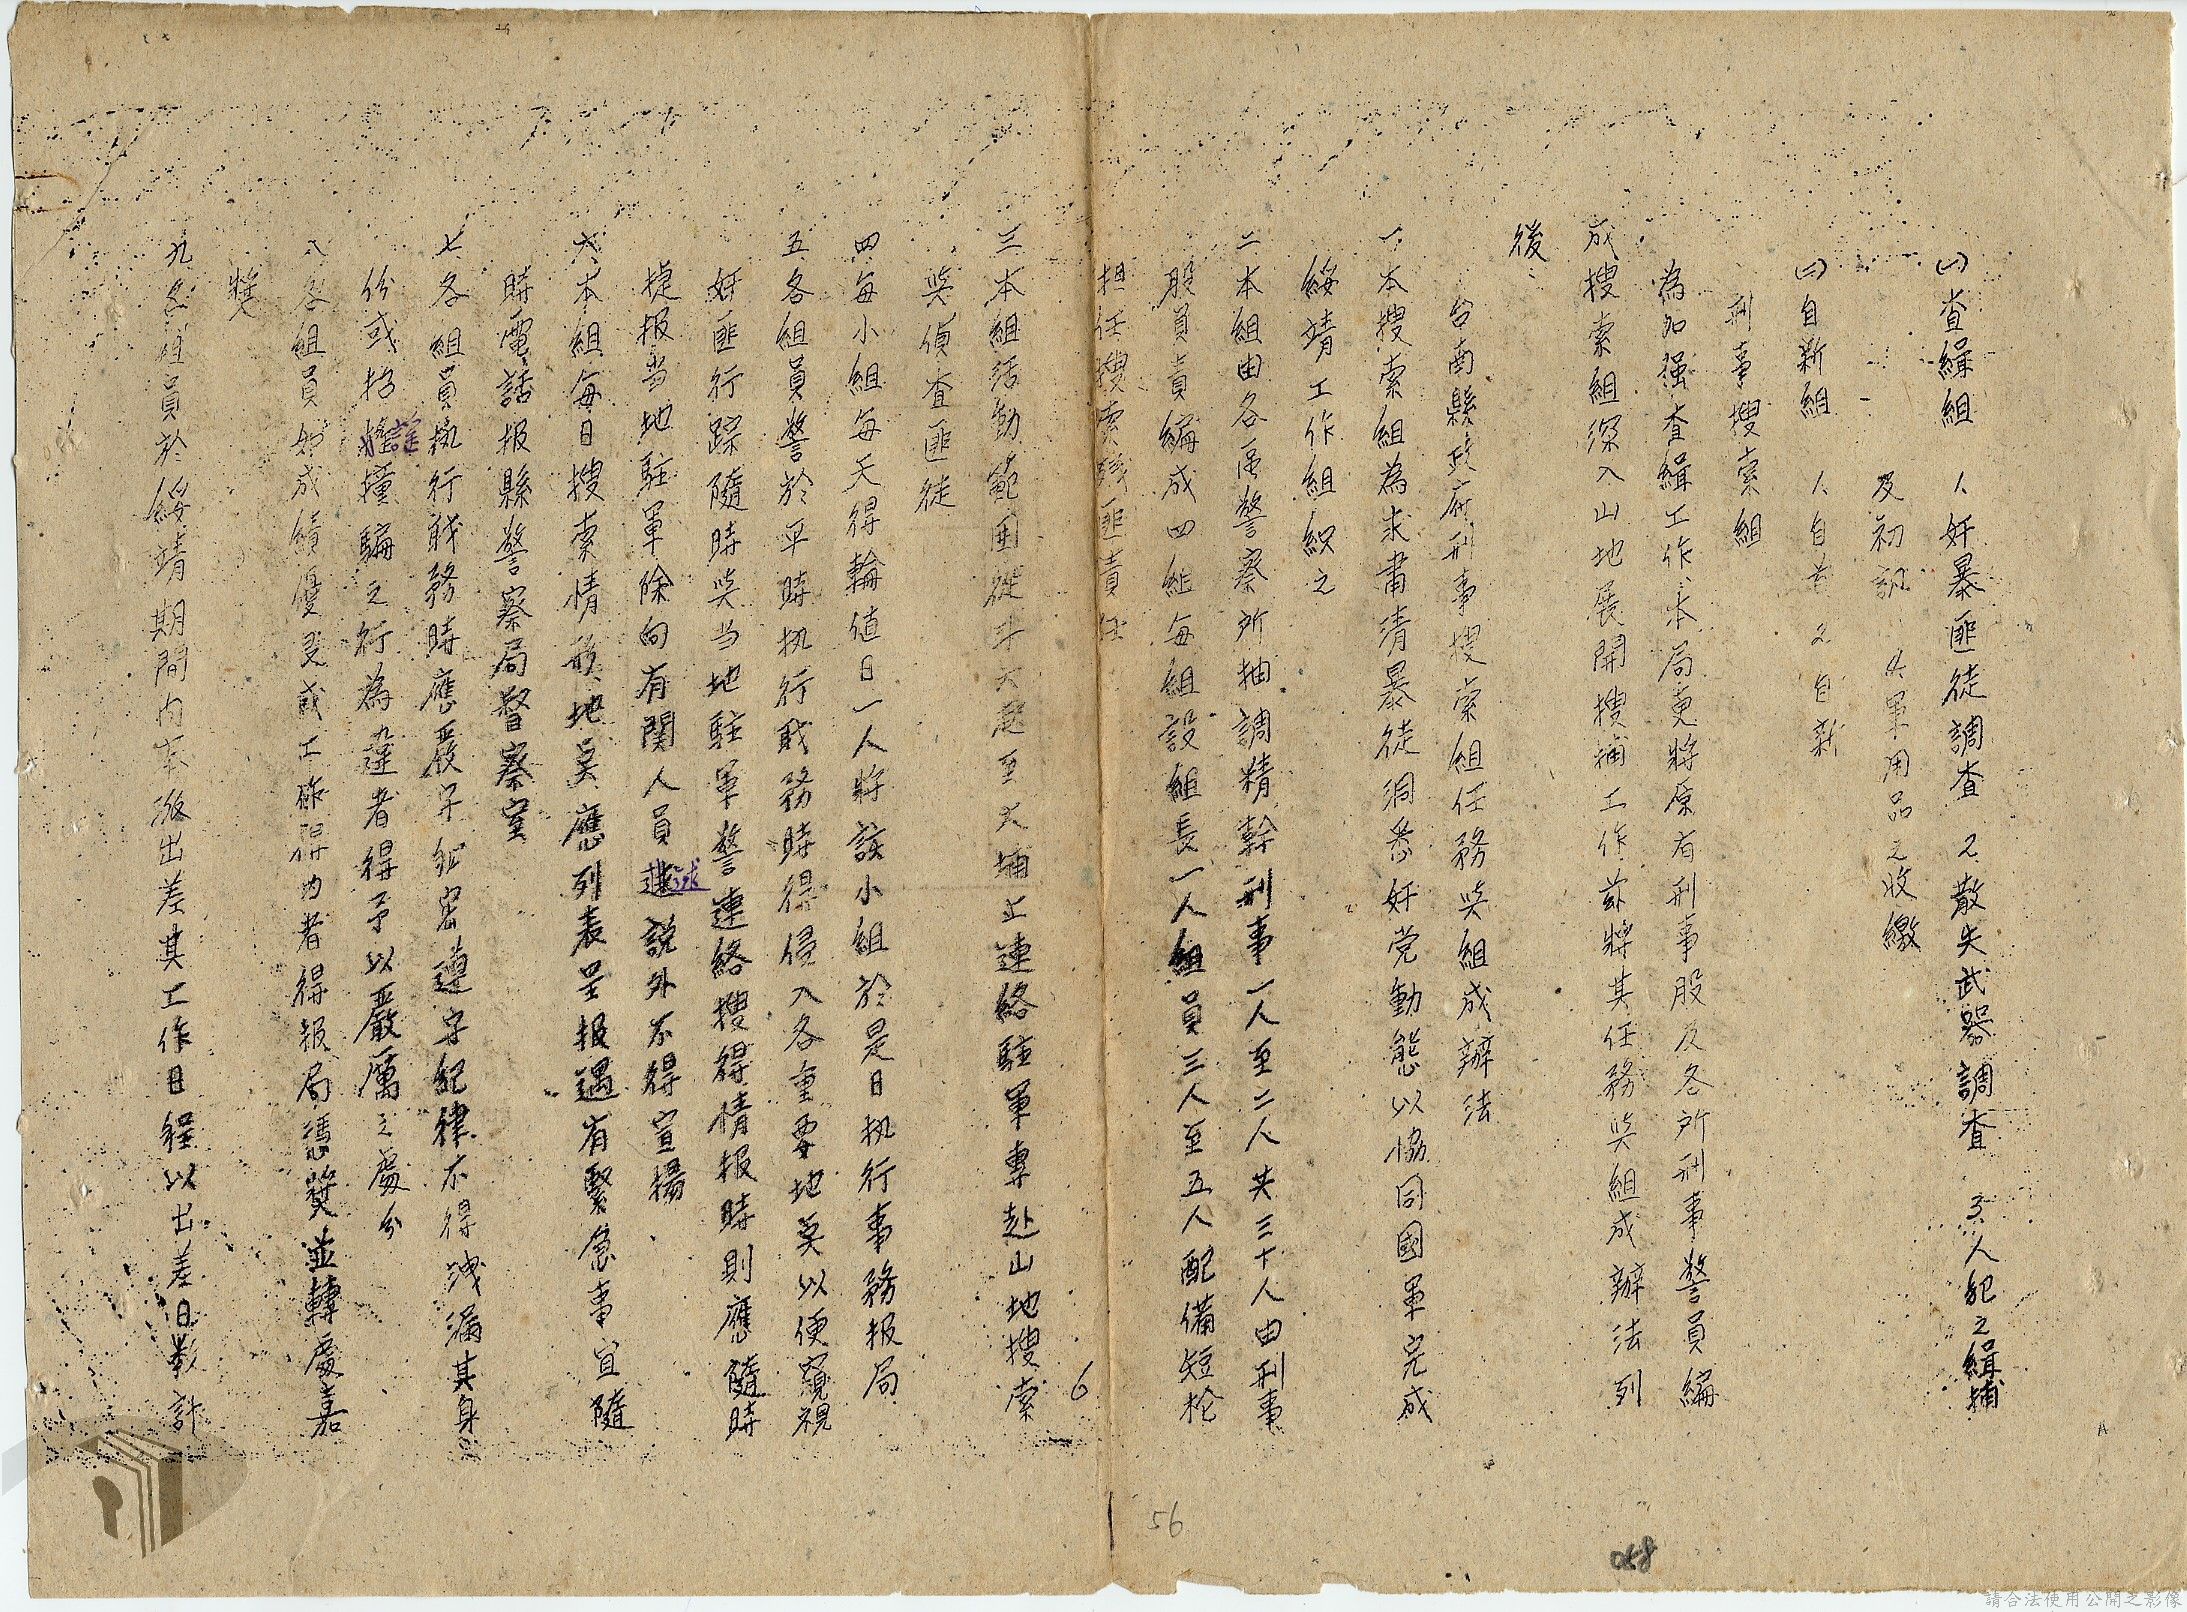 (一)查緝組　1、奸暴匪徒調查　2、散失武器調查　3、人犯之緝捕
及初訊　4、軍用品之收繳
(二)自新組　1、自首　2、自新
刑事搜索組
為加强查緝工作本局更將原有刑事股及各所刑事警員編
成搜索組深入山地展開搜捕工作茲將其任務與組成辦法列
後：
台南縣政府刑事搜索組任務與組成辦法
一、本搜索組為求肅清暴徒洞悉奸党動態以協同國軍完成
綏靖工作組織之
二、本組由各區警察所抽調精幹刑事一人至二人共三十人由刑事
股員責編成四組每組設組長一人組員三人至五人配備短枪
担任搜索殘匪責任
三、本組活動範囲從斗六起至大埔止連絡駐軍專赴山地搜索
與偵查匪徒
四、每小組每天得輪值日一人將該小組於是日执行事務报局
五、各組員警於平時执行职務時得侵入各重要地奌以便窺視
奸匪行踪隨時與当地駐軍警連絡搜得情报時則應隨時
提报当地駐軍除向有関人員述說外不得宣揚
六、本組每日搜索情形、地奌應列表呈报遇有緊急事宜隨
時電話报縣警察局督察室
七、各組員执行职務時應嚴守組密遵守紀律不得洩漏其身
份或招搖撞騙之行為違者得予以嚴厲之處分
八、各組員如成績優良或工作得力者得报局憑奬並轉處嘉
奬
九、各組員於綏靖期間内奉派出差其工作日程以出差日数計
6
56
058
請合法使用公開之影像